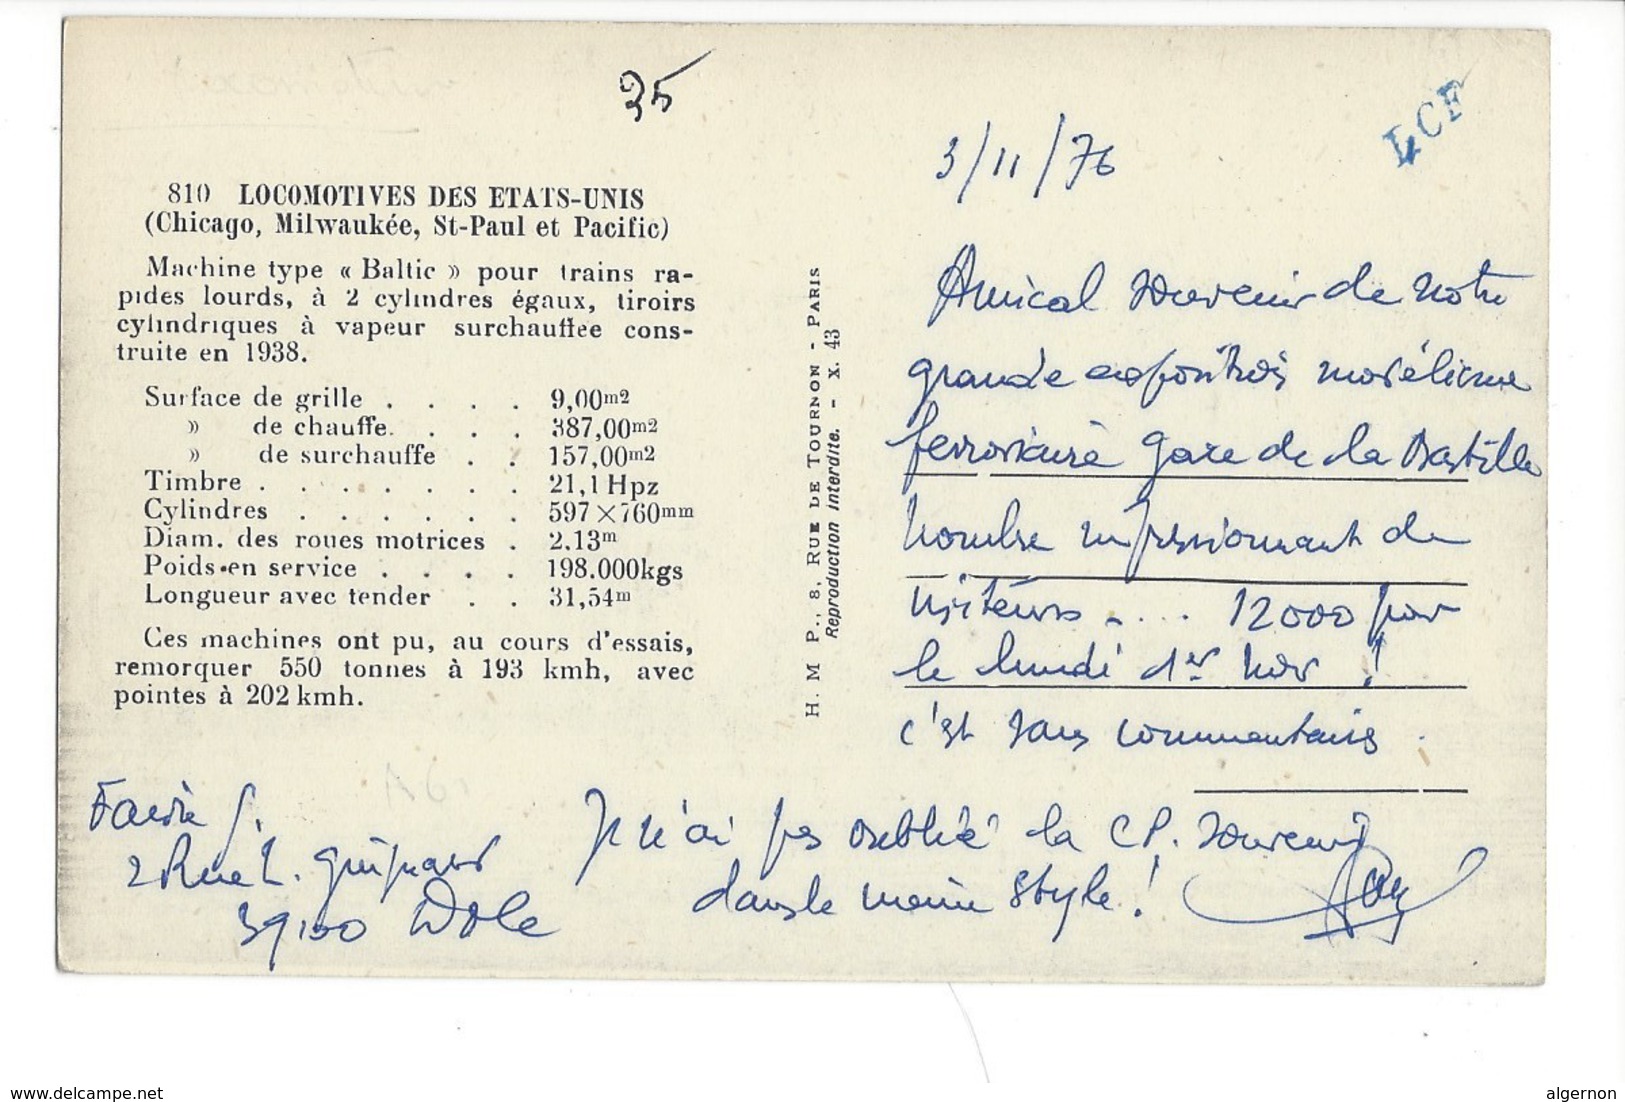 35
LCF
810 LOCOMOTIVES DES ETATS-UNIS
(Chicago, Milwaukée, St-Paul et Pacific)
Machine type « Baltic » pour trains ra-
pides lourds, à 2 cylindres égaux, tiroirs
cylindriques à vapeur surchauffée cons-
truite en 1938.
Surface de grille . . . . 9,00m2
» de chauffe. . . . 387,00m2
» de surchauffe . . 157,00m2
Timbre . . . . . . . 21,1 Hpz
Cylindres . . . . . . 597×760mm
Diam. des roues motrices . 2.13m
Poids en service . . . . 198.000kgs
Longueur avec tender . . 31,54m
Ces machines ont pu, au cours d'essais,
remorquer 550 tonnes à 193 kmh, avec
pointes à 202 kmh.
H. M P., 8, RUE DE TOURNON - PARIS
Reproduction interdite. - X. 43
3/11/76
Amical souvenir de notre
grande exposition modélisme
ferroviaire gare de la Bastille
nombre impressionnant de
visiteurs .... 12000 pour
le lundi 1er Nov !
c'est sans commentaires .
Je n'ai pas oublié la CP. souvenir
dans le même style !
2 Rue L.
39100 Dole
www.delcampe.net
algernon